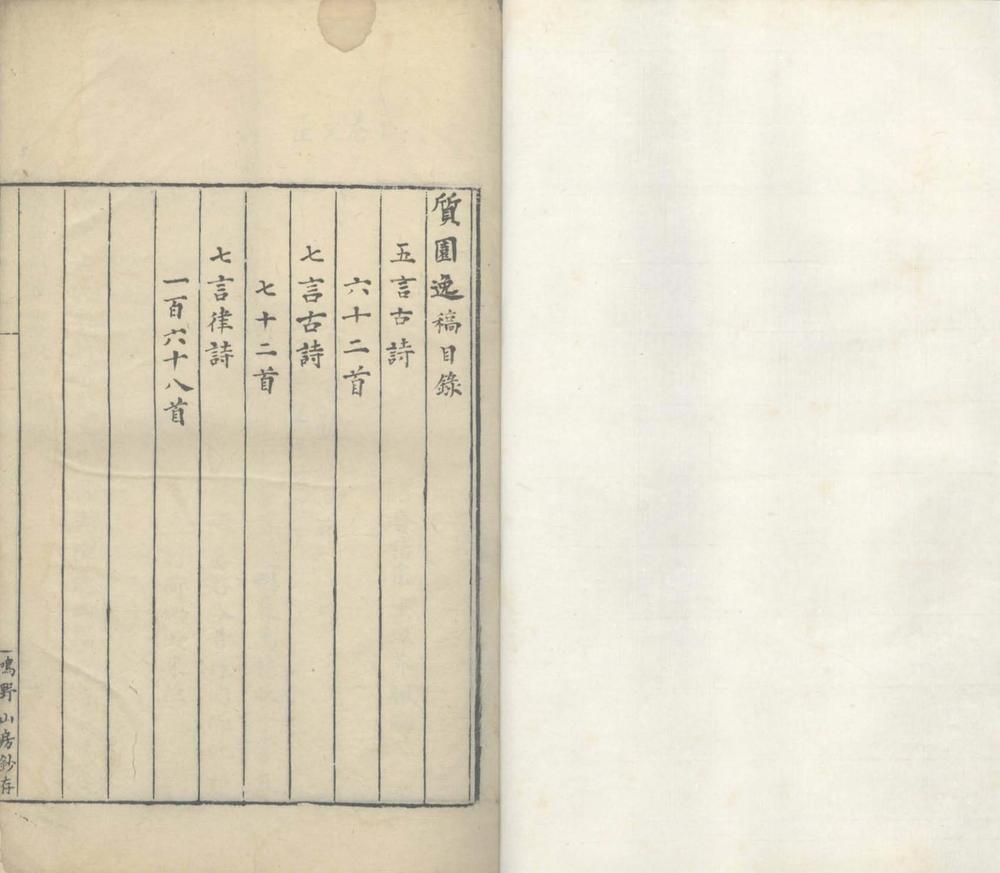 質園逸稿目錄
五言古詩
六十二首
七言古詩
七十二首
七言律詩
一百六十八首
鳴野山房鈔存